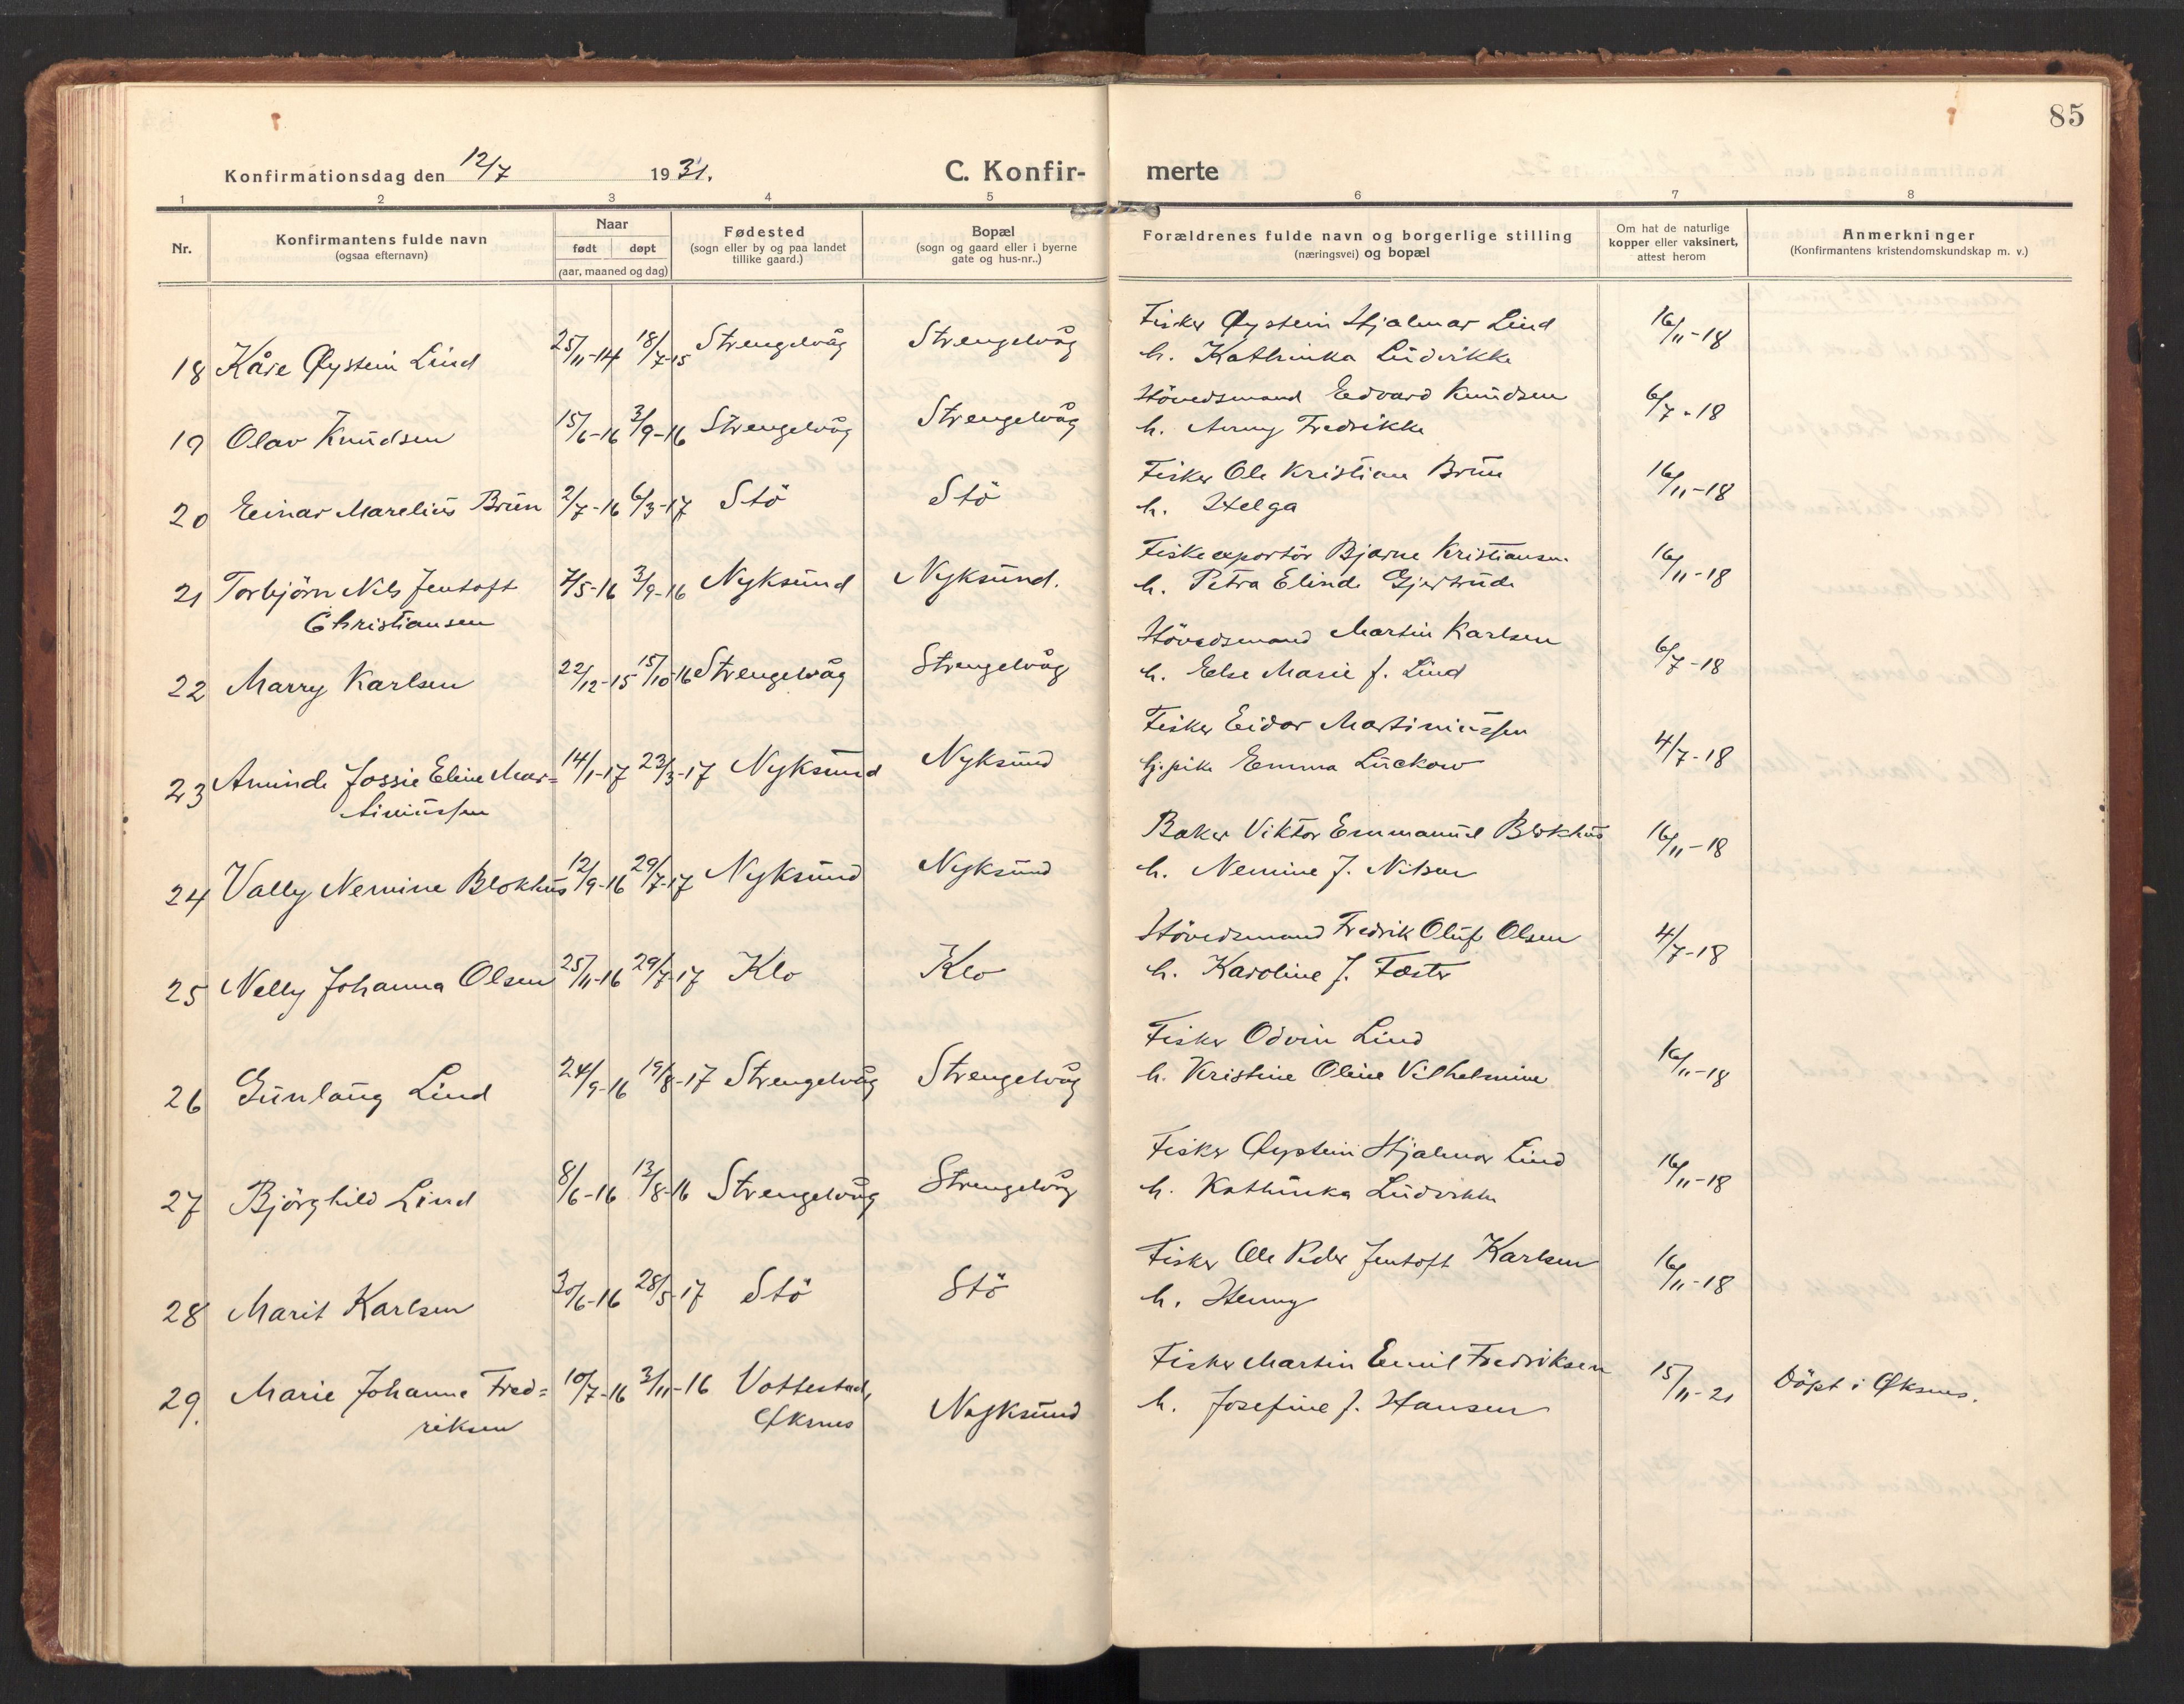 85
Konfirmationsdag den 12/7 1931.
C. Konfir-
merte
1 2 3 4 5 6 7 8
Nr.
Konfirmantens fulde navn
(ogsaa efternavn)
Naar
født døpt
(aar, maaned og dag)
Fødested
(sogn eller by og paa landet
tillike gaard.)
Bopæl
(sogn og gaard eller i byerne
gate og hus-nr..)
Forældrenes fulde navn og borgerlige stilling
(næringsvei) og bopæl
Om hat de naturlige
kopper eller vaksinert,
attest herom
Anmerkninger
(Konfirmantens kristendomskundskap m. v.)
18 Kåre Øystein Lind 25/11-14 18/7-15 Strengelvåg Strengelvåg
Fisker Øystein Hjalmar Lind 16/11-18
h. Kathinka Ludvikke
19 Olav Knudsen 15/6-16 3/9-16 Strengelvåg Strengelvåg
Hövedsmand Edvard Knudsen 6/7-18
h. Fredrikke
20 Einar Marelius Brun 2/7-16 6/3-17 Stö Stö
Fisker Ole Kristian Brun 16/11-18
h. Helga
21 Torbjörn Nils Jentoft 7/5-16 3/9-16 Nyksund Nyksund.
Christiansen
Fiskeexportör Bjarne Kristiansen 16/11-18
h. Petra Elinde Gjertrude
22 Marry Karlsen 22/12-15 15/10-16 Strengelvåg Strengelvåg
Hövedsmand Martin Karlsen 6/7-18
h. Else Marie f. Lind
23 Aminde Jossie Eline Mar= 14/1-17 23/3-17 Nyksund Nyksund
tinussen
Fisker Eidar Martinussen 4/7-18
Emma Lückow
24 Vally Nemine Blokhus 12/9-16 29/7-17 Nyksund Nyksund
Baker Viktor Emmanuel Blokhus 16/11-18
h. Nemine f. Nilsen
25 Nelly Johanna Olsen 25/11-16 29/7-17 Klo Klo
Hövedsmand Fredrik Oluf Olsen 4/7-18
h. Karoline f. Fæster
26 Gunlaug Lind 24/9-16 19/8-17 Strengelvåg Strengelvåg
Fisker Odvin Lind 16/11-18
h. Kristine Oline Vilhelmine
27 Björghild Lind 8/6-16 13/8-16 Strengelvåg Strengelvåg
Fisker Øystein Hjalmar Lind 16/11-18
h. Kathinka Ludvikke
28 Marit Karlsen 30/6-16 28/5-17 Stö Stö
Fisker Ole Peder Jentoft Karlsen 16/11-18
h. Henny
29. Marie Johanne Fred= 10/7-16 3/11-16 Vottestad, Nyksund
riksen Øksnes
Fisker Martin Emil Fredriksen 15/11-21 Döpt i Øksnes.
h. Josefine f. Hansen